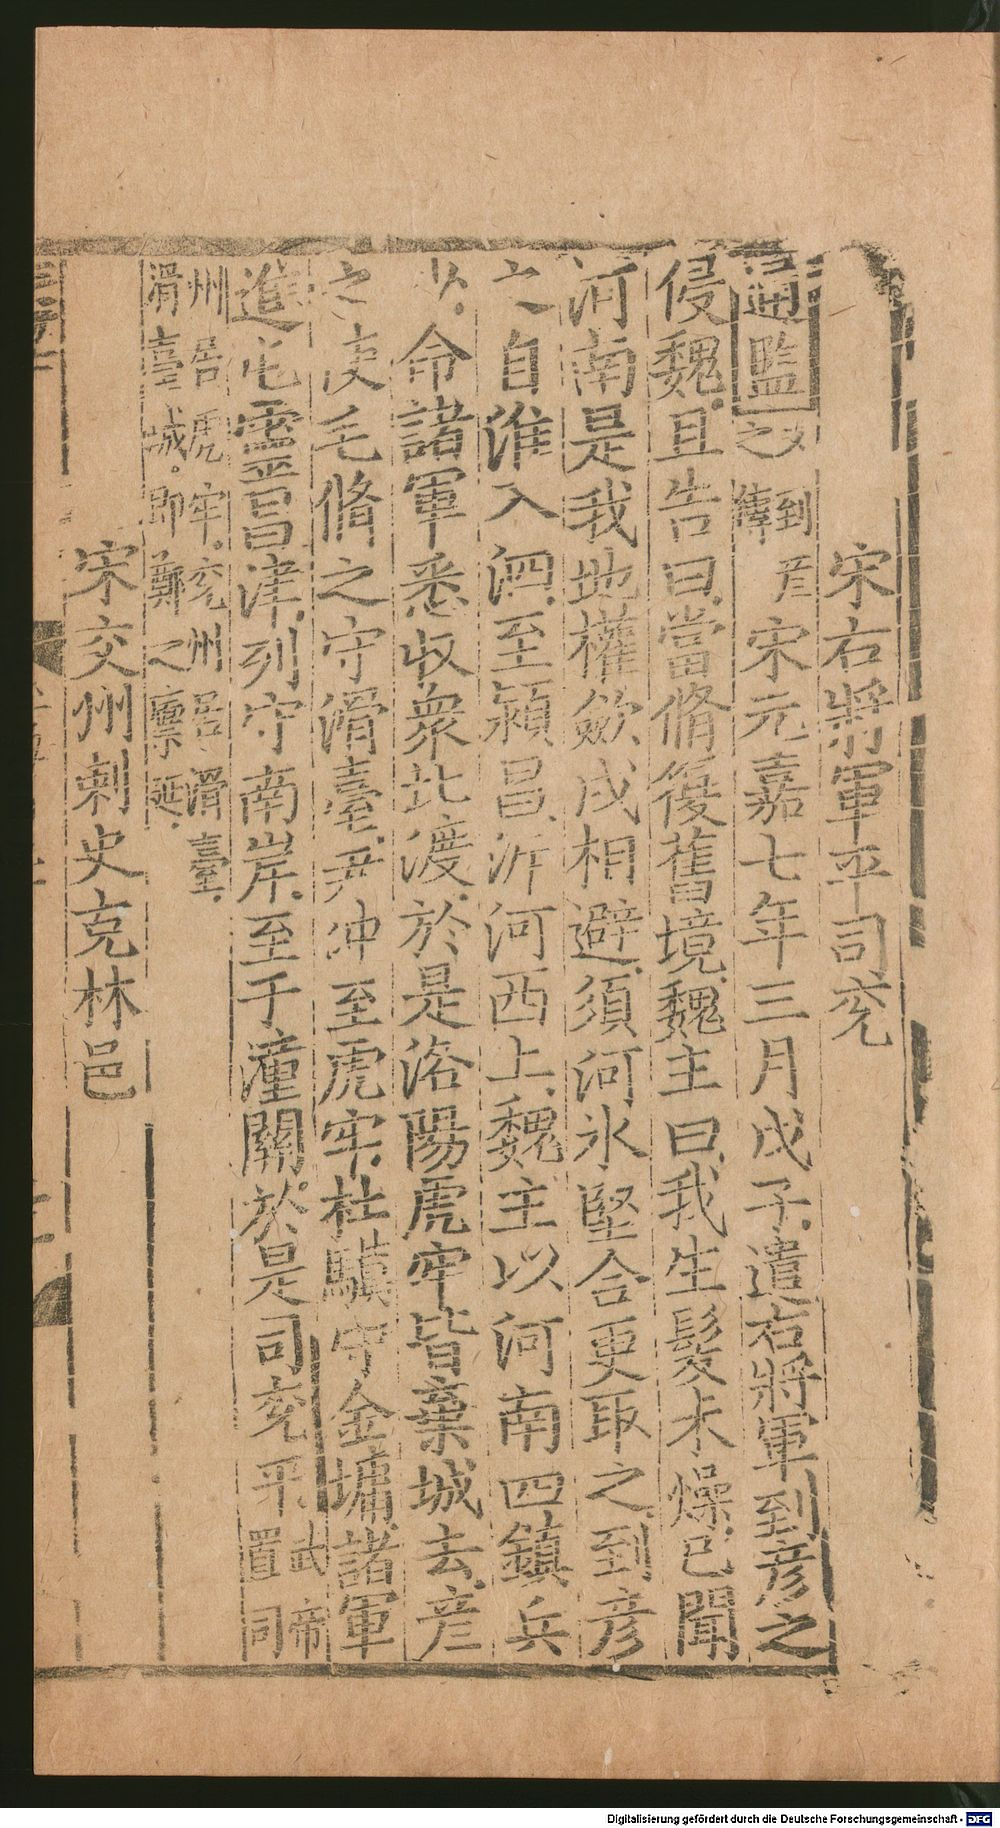 宋右將軍平司兖
通監 又之 到彥傳 宋元嘉七年三月戊子遣右將軍到彥之
侵魏且告曰當脩復舊境魏主曰我生髮未燥已聞
河南是我地權斂戍相避須河氷堅合更取之到彥
之自淮入泗至潁昌泝河西上魏主以河南四鎮兵
少命諸軍悉收衆北渡於是洛陽虎牢皆棄城去彥
之使毛脩之守滑臺尹冲至虎牢杜驥守金墉諸軍
進屯靈昌津列守南岸至于潼關於是司兖平 武帝置司
州居虎牢兖州居滑臺
滑臺城即鄭之廩延
宋交州刺史克林邑
Digitalisierung gefördert durch die Deutsche Forschungsgemeinschaft - DFG